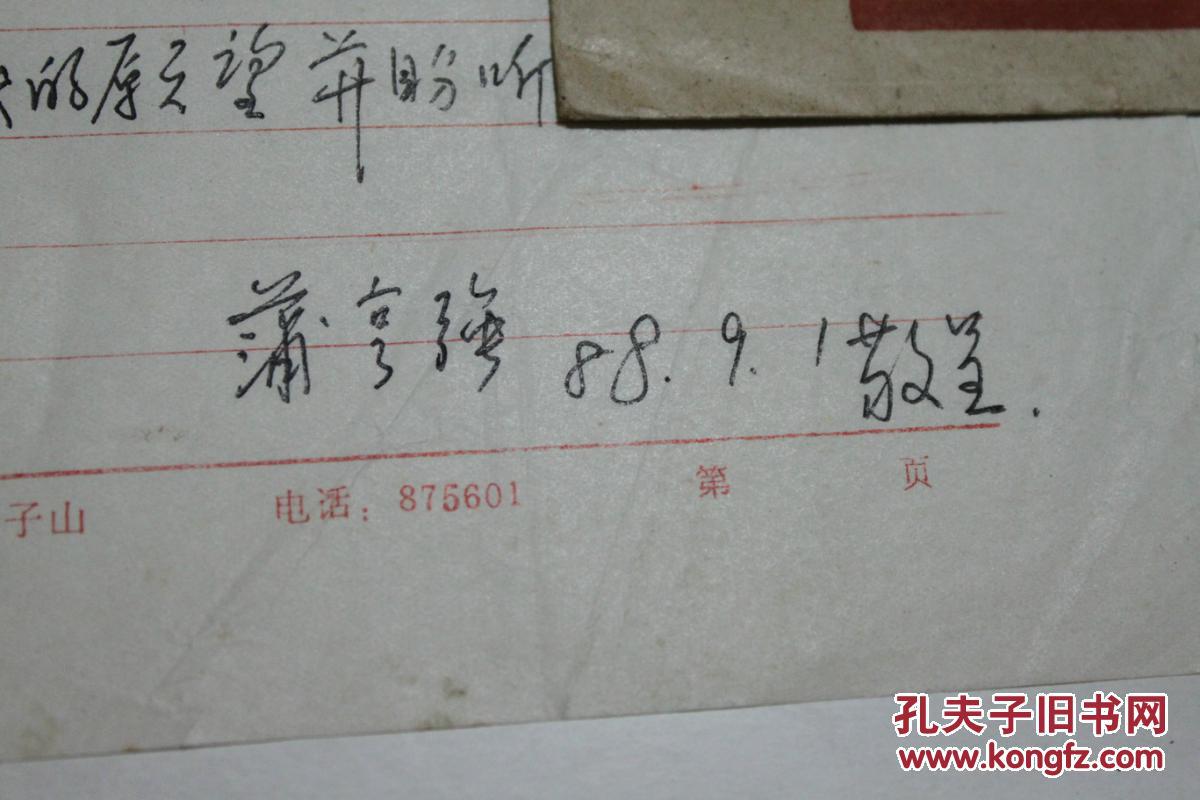 的愿望并盼听
蒲亨强 88.9.1敬呈.
子山 电话：875601 第 页
孔夫子旧书网
www.kongfz.com